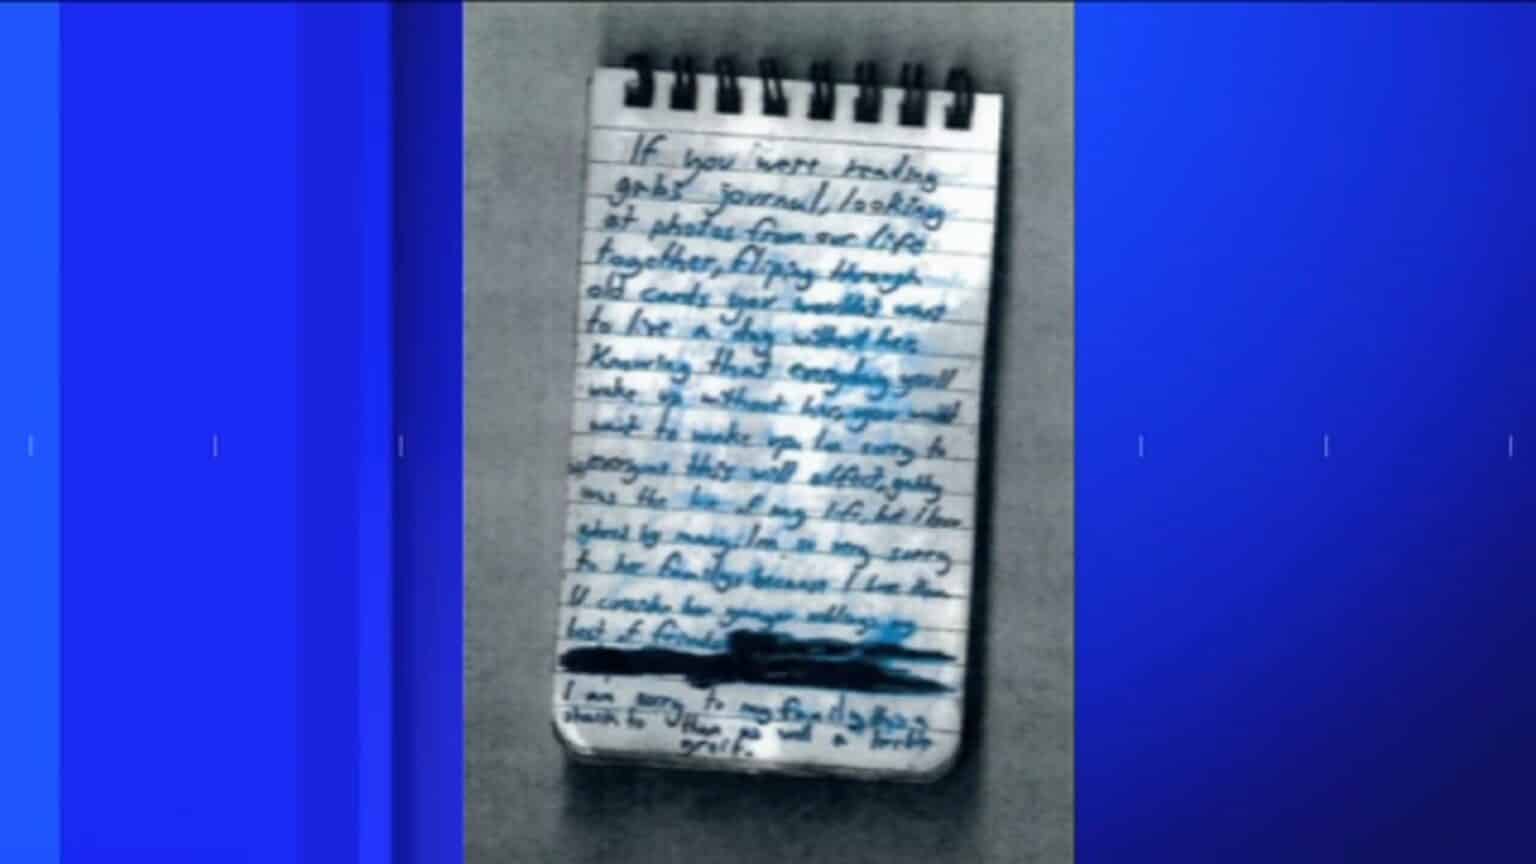 If you were reading
gabs journal, looking
at photos from our life
together, fliping through
old cards you wouldn't want
to live a day without her.
Knowing that everyday you'll
wake up without her, you wouldnt
want to wake up. I'm sorry to
everyone this will affect, gabby
was the love of my life, but I know
adored by many. I'm so very sorry
to her family, because I love them
I'd consider her younger siblings my
best of friends
I am sorry to my family, this is
shock to them as well a terrible
greif.